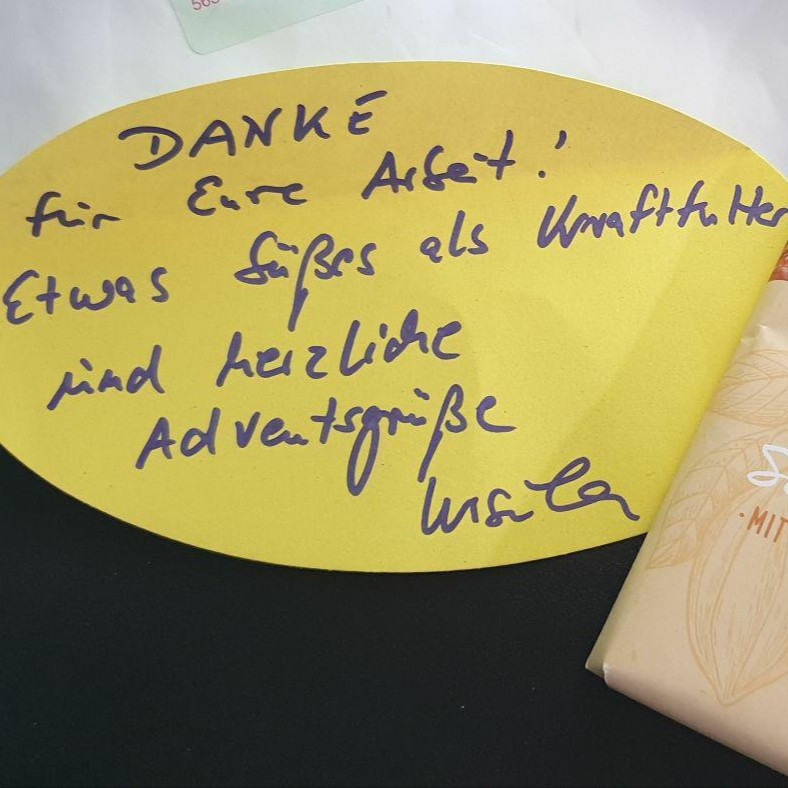 565
DANKE
für Eure Arbeit!
Etwas Süßes als Kraftfutter
und herzliche
Adventsgrüße
Ursula
·MIT